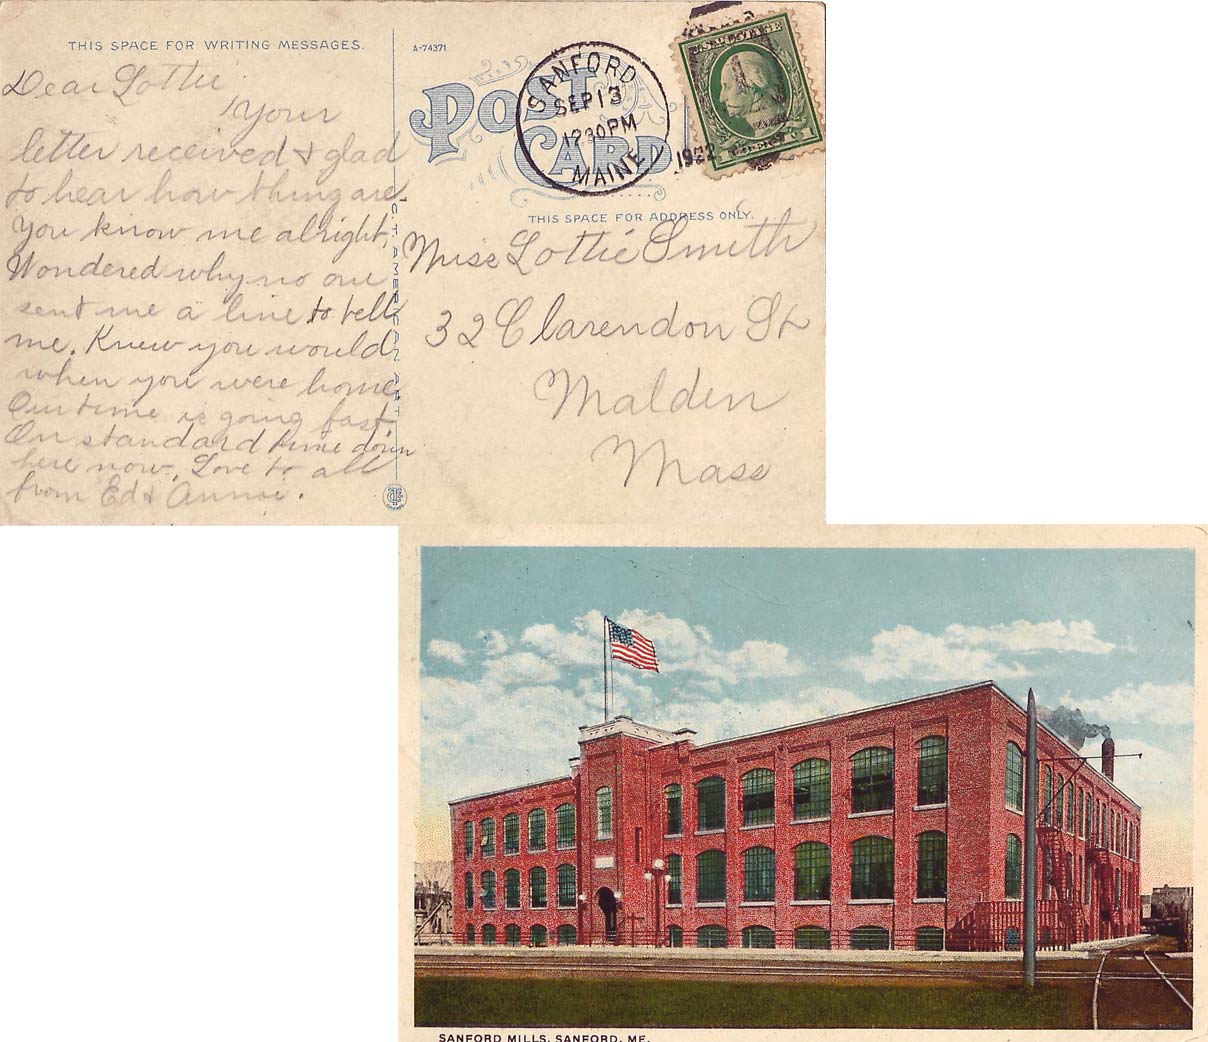 THIS SPACE FOR WRITING MESSAGES.
Dear Lottie
Your
letter received & glad
to hear how thing are
You know me alright,
Wondered why no one
sent me a line to tell
me. Knew you would
when you were home
Our time is going fast
On standard time down
here now. Love to all
from Ed & Annie.
A-74371
POST
CARD
SANFORD
SEP 13
12 30 PM
MAINE
1922
C.T. AMERICAN ART
THIS SPACE FOR ADDRESS ONLY.
Miss Lottie Smith
32 Clarendon St
Malden
Mass
SANFORD MILLS, SANFORD, ME.